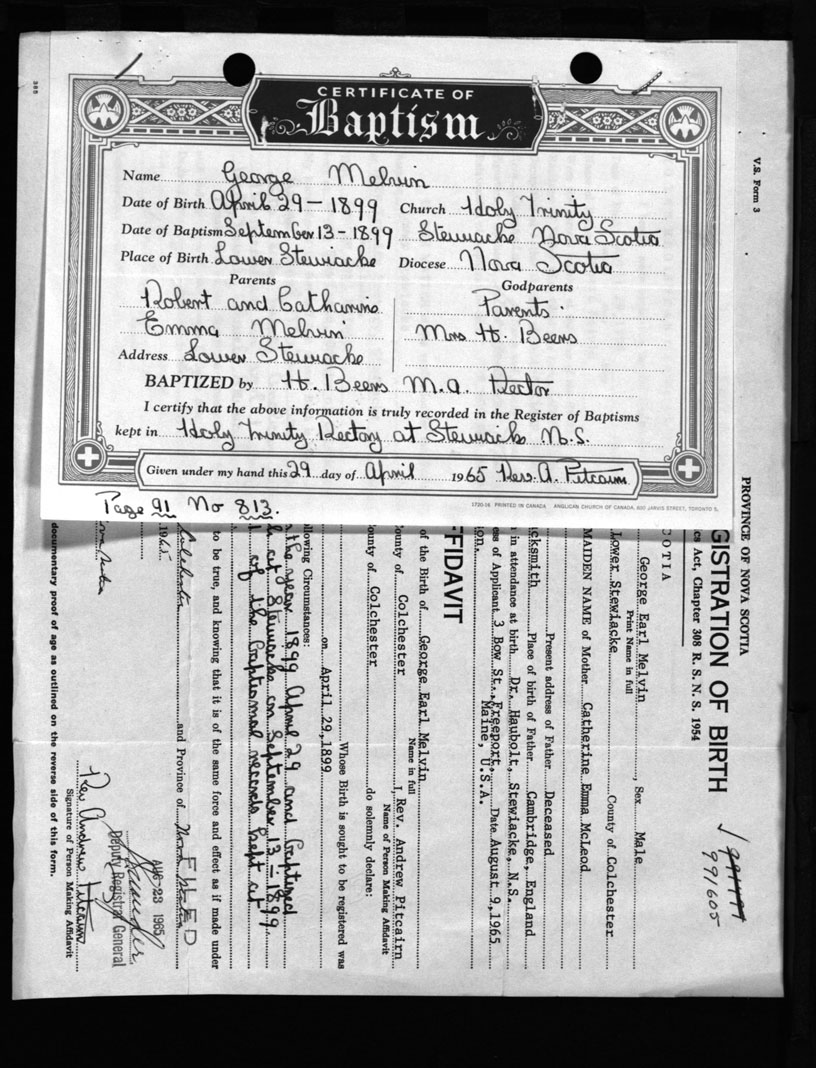 385
CERTIFICATE OF
Baptism
Name George Melvin
Date of Birth April 29 – 1899 Church Holy Trinity
Date of Baptism September 13 – 1899 Stewiacke Nova Scotia
Place of Birth Lower Stewiacke Diocese Nova Scotia
Parents Godparents
Robert and Catharine Parents
Emma Melvin Mrs H. Beers
Address Lower Stewiacke
BAPTIZED by H. Beers M.A. Rector
I certify that the above information is truly recorded in the Register of Baptisms
kept in Holy Trinity Rectory at Stewiacke N.S.
Given under my hand this 29 day of April 1965 Rev. A. Pitcairn
1720-16 PRINTED IN CANADA ANGLICAN CHURCH OF CANADA, 600 JARVIS STREET, TORONTO 5,
Page 91 No 813.
V.S. Form 3
PROVINCE OF NOVA SCOTIA
GISTRATION OF BIRTH
cs Act, Chapter 308 R. S. N. S. 1954
991605
COTIA
George Earl Melvin, Sex Male
Print Name in full
Lower Stewiacke County of Colchester
MAIDEN NAME of Mother Catherine Emma McLeod
Present address of Father Deceased
cksmith Place of birth of Father Cambridge, England
n in attendance at birth Dr. Haubolt, Stewiacke, N.S.
ess of Applicant 3 Bow St., Freeport, Date August 9, 1965
Maine, U.S.A.
ion.
FFIDAVIT
of the Birth of George Earl Melvin
Name in full
ounty of Colchester I, Rev. Andrew Pitcairn
Name of Person Making Affidavit
ounty of Colchester do solemnly declare:
Whose Birth is sought to be registered was
on April 29, 1899
llowing Circumstances:
the year 1899 April 29 and baptized
at Stewiacke on September 13 – 1899.
of the Baptismal records kept at
to be true, and knowing that it is of the same force and effect as if made under
Colchester and Province of Nova Scotia
1965
FILED
AUG 23 1965
Deputy Registrar General
Rev. Andrew Pitcairn
Signature of Person Making Affidavit
documentary proof of age as outlined on the reverse side of this form.